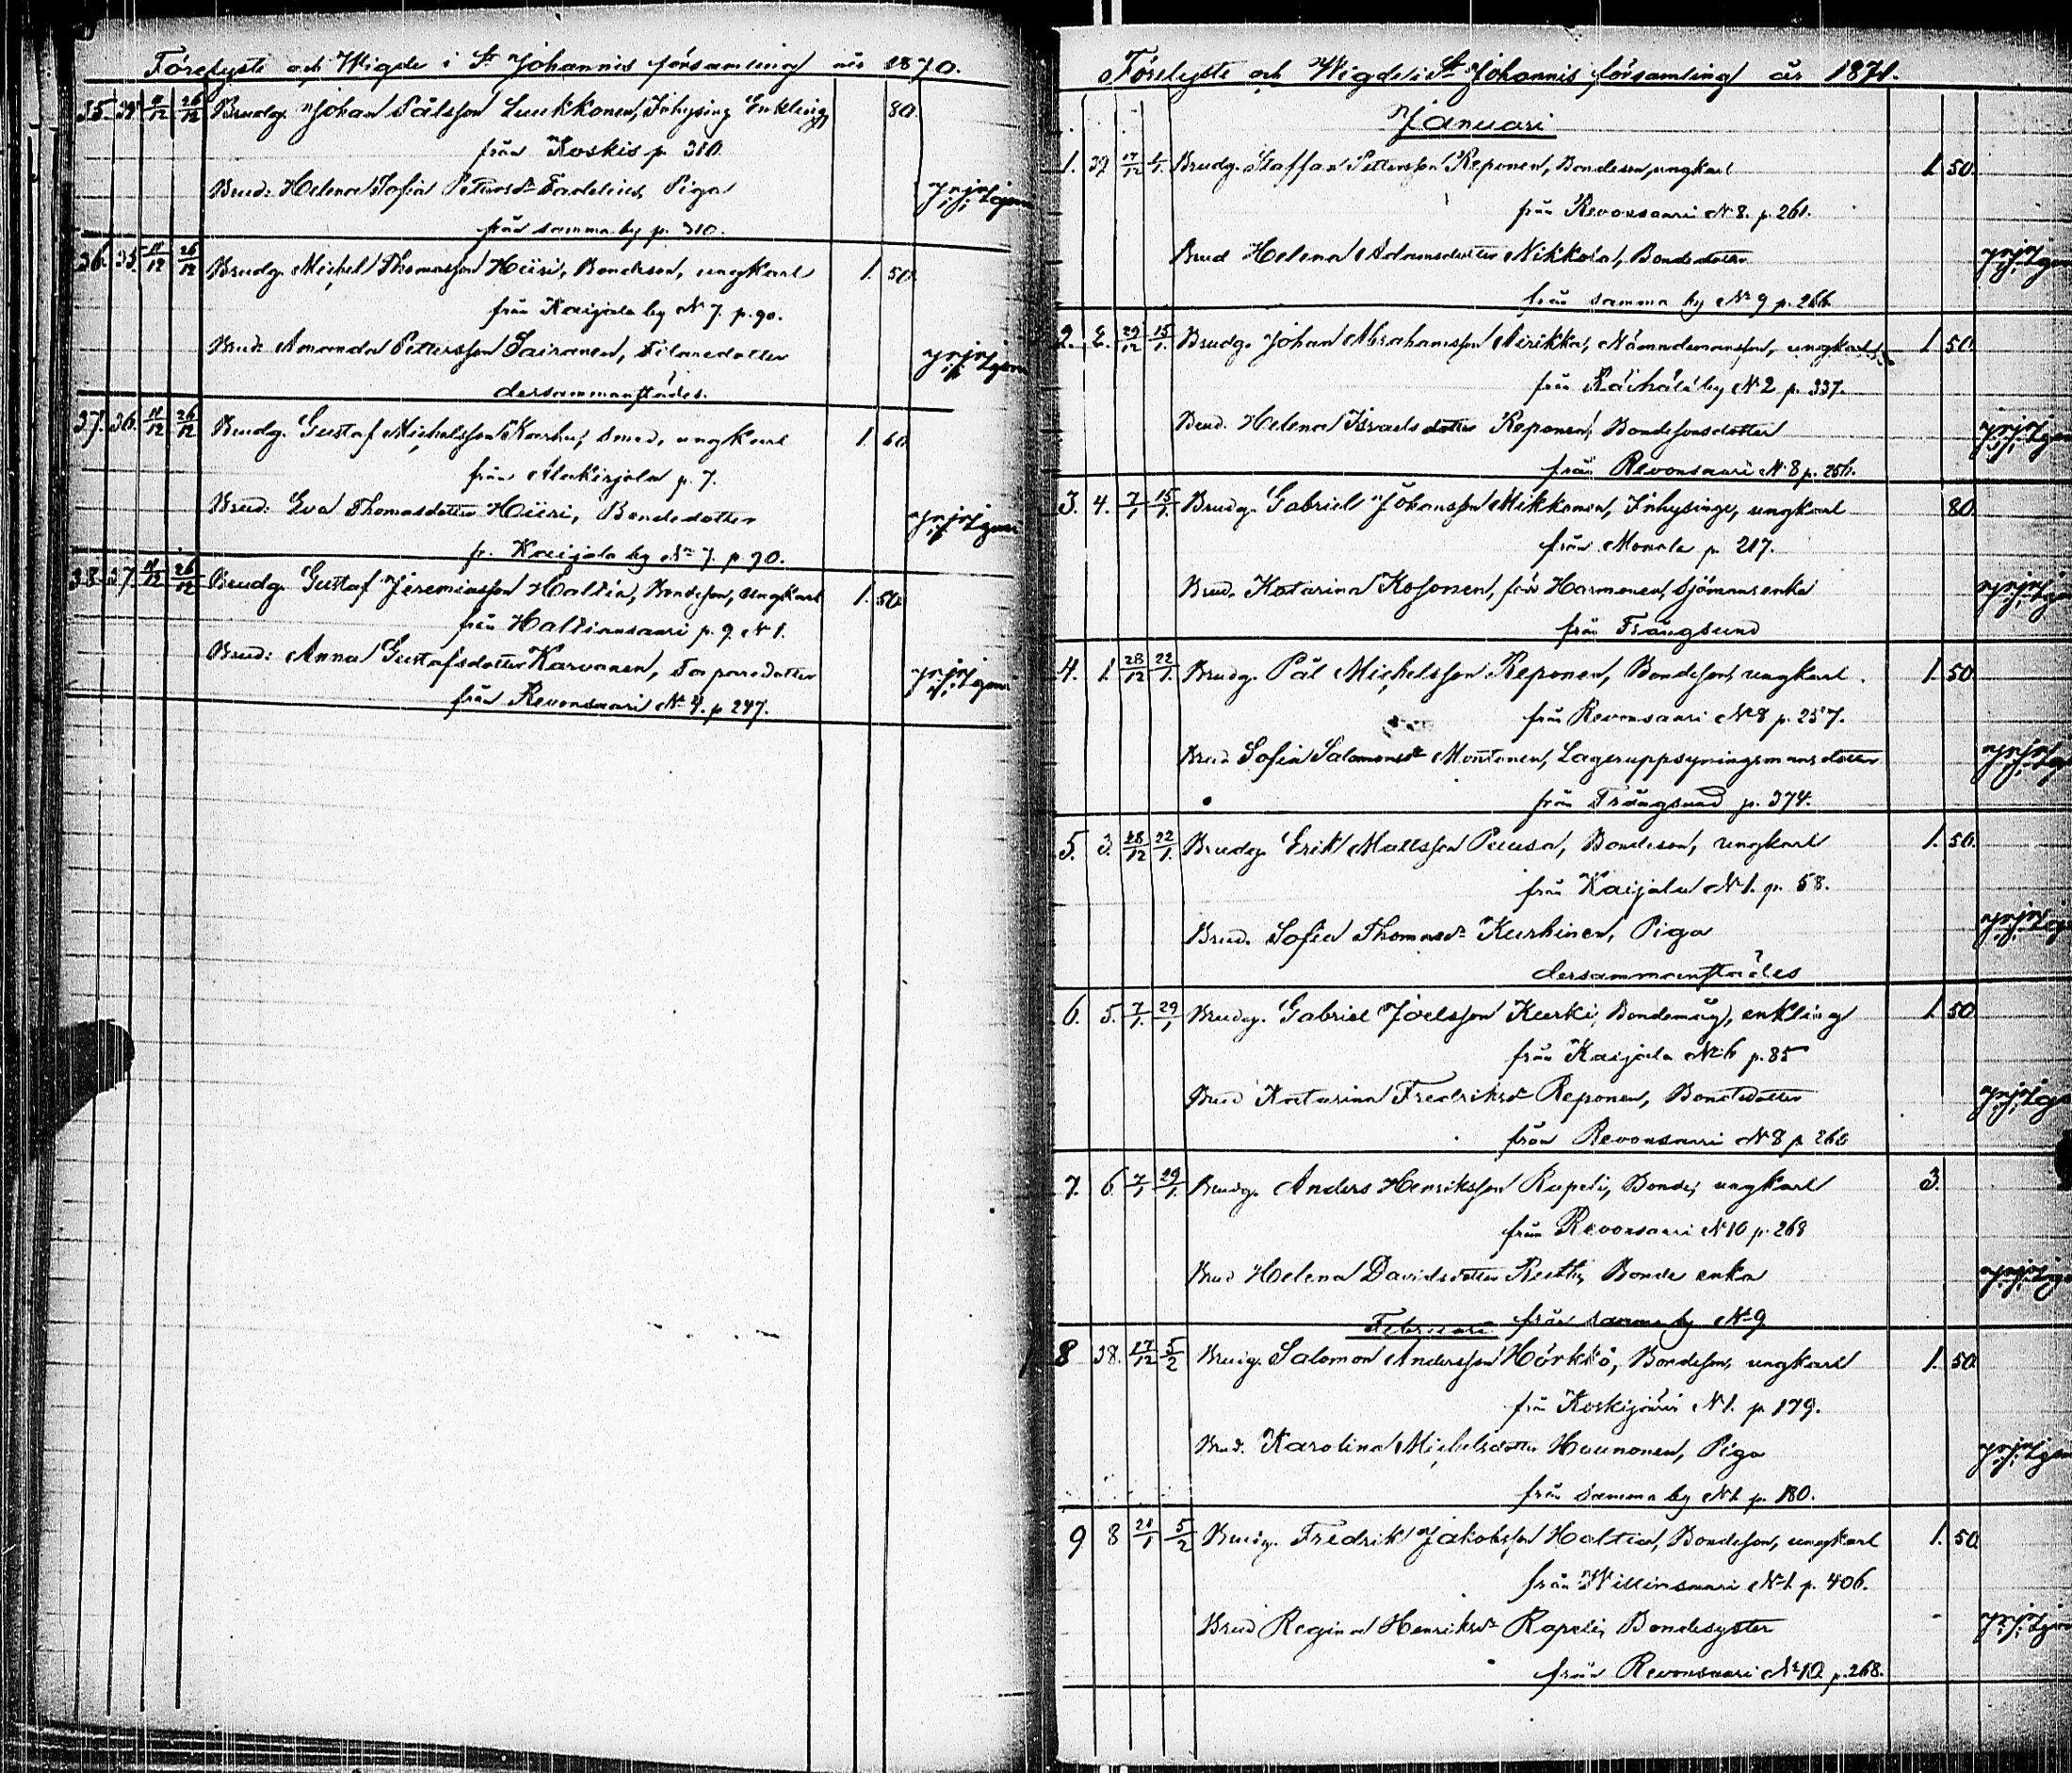 Förelyste och Wigde i St Johannis församling år 1870.
35. 39 11/12 26/12 Brudg. Johan Pålsson Luukkonen, Inhysing Enkling 80.
från Koskis p. 310.
Brud: Helena Sofia Pettersdr Fadelius, Piga
från samma by p. 310.
36. 35. 11/12 26/12 Brudg. Michel Thomasson Hiiri, Bondeson, ungkarl 1. 50.
från Kaijala by No 7. p. 90.
Brud: Amanda Pettersson Sairanen,
dersammanstädes.
37. 36. 11/12 26/12 Brudg. Gustaf Michelsson Karhu, Smed, ungkarl 1. 60.
från Alakirjola p. 7.
Brud: Eva Thomasdotter Hiiri, Bondedotter
fr. Kaijala by No 7. p. 90.
38. 37. 11/12 26/12 Brudg. Gustaf Jeremiasson Haltia, Bondeson, ungkarl 1. 50.
från Haltiansaari p. 9. N 1.
Brud: Anna Gustafsdotter Karvanen, Torparedotter
från Revonsaari No 4. p. 247.
Förelyste och Wigde i St Johannis församling år 1871.
Januari
1. 39 17/12 6/1. Brudg. Staffan Pettersson Reponen, Bondeson, ungkarl 1. 50.
från Revonsaari N 8. p. 261.
Brud Helena Adamsdotter Nikkola, Bondedotter
från samma by No 9 p. 266
2. 2. 29/12 15/1. Brudg. Johan Abrahamsson Airikka, Nämndemansson, ungkarl 1. 50.
från Räihälä by No 2 p. 337.
Brud. Helena Israelsdotter Reponen, Bondesonsdotter
från Revonsaari N 8 p. 256.
3. 4. 7/1 15/1. Brudg. Gabriel Johansson Mikkonen, Inhysinge, ungkarl 80.
från Monola p. 217.
Brud. Katarina Kosonen, för Harmonen, Sjömansenka
från Trångsund
4. 1. 28/12 22/1. Brudg. Pål Michelsson Reponen, Bondeson, ungkarl. 1. 50
från Revonsaari No 8 p. 257.
Brud Sofia Salomonsdr Montonen, Lageruppsyningsmansdotter
från Trångsund p. 374.
5. 3. 28/12 22/1. Brudg. Erik Mattsson Puusa, Bondeson, ungkarl 1. 50.
från Kaijala N 1. p. 58.
Brud. Sofia Thomasdr Kurhinen, Piga
dersammanstädes
6. 5. 7/1. 29/1 Brudg. Gabriel Joelsson Kurki, Bondemåg, enkling 1. 50
från Kaijala No 6 p. 85
Brud Katarina Fredriksdr Reponen, Bondedotter
från Revonsaari N 8 p. 260
7. 6 7/1 29/1. Brudg. Anders Henriksson Rapeli, Bonde, ungkarl 3.
från Revonsaari N 10 p. 268
Brud Helena Davidsdotter Pietti, Bonde enka
från samma by No 9
Februari
8 38. 17/12 5/2 Brudg. Salomon Andersson Hörkkö, Bondeson, ungkarl 1. 50.
från Koskijärvi N 1. p. 179.
Brud. Karolina Michelsdotter Haunonen, Piga
från samma by N 1. p. 180.
9. 8 21/1 5/2 Brudg. Fredrik Jakobsson Haltia, Bondeson, ungkarl 1. 50
från Willinsaari No 1. p. 406.
Brud Regina Henriksdr Rapeli, Bondesyster
från Revonsaari No 10. p. 268.